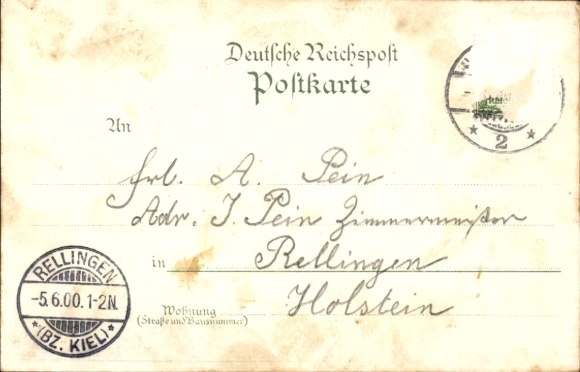 Deutsche Reichspost
Postkarte
An
Frl. A. Pein
Adr. J. Pein Zimmermeister
in Rellingen
Holstein
Wohnung
(Straße und Hausnummer)
RELLINGEN
-5.6.00.1-2N.
*(BZ. KIEL)*
* 2 *